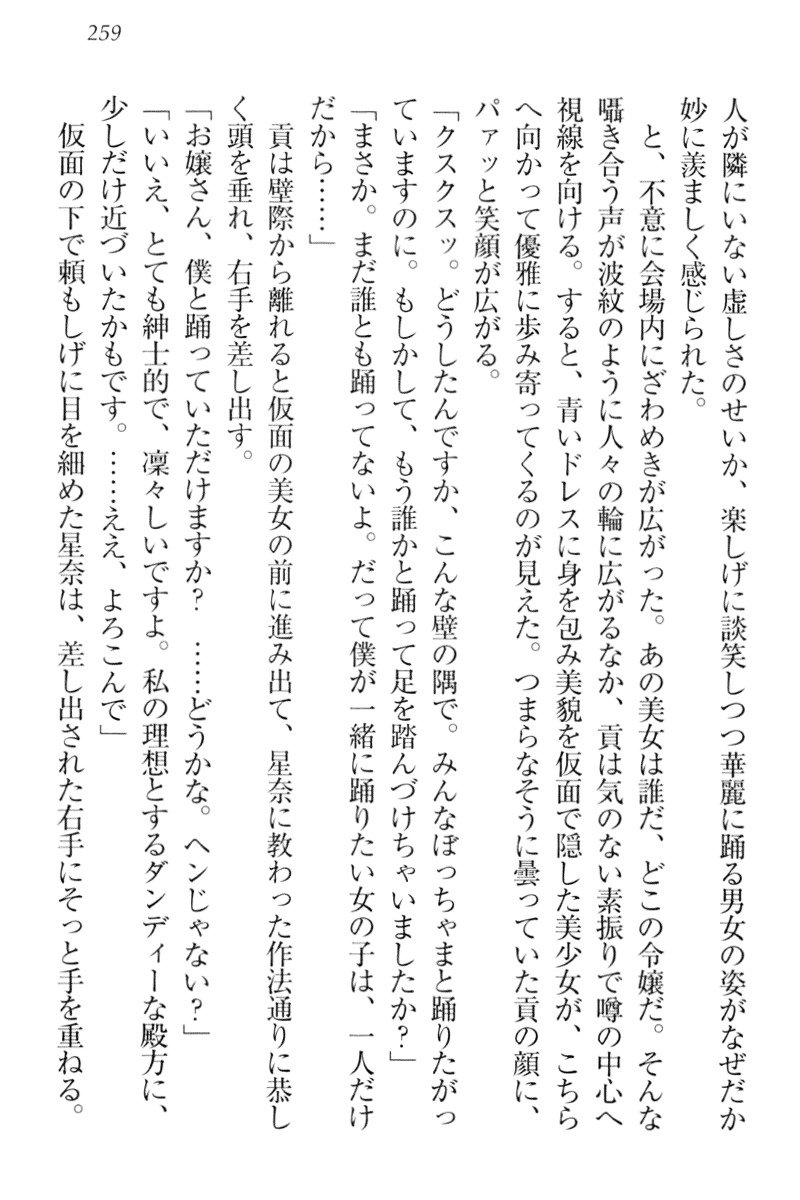 259
人が隣にいない虚しさのせいか、楽しげに談笑しつつ華麗に踊る男女の姿がなぜだか
妙に羨ましく感じられた。
と、不意に会場内にざわめきが広がった。あの美女は誰だ、どこの令嬢だ。そんな
囁き合う声が波紋のように人々の輪に広がるなか、貢は気のない素振りで噂の中心へ
視線を向ける。すると、青いドレスに身を包み美貌を仮面で隠した美少女が、こちら
へ向かって優雅に歩み寄ってくるのが見えた。つまらなそうに曇っていた貢の顔に、
パァッと笑顔が広がる。
「クスクスッ。どうしたんですか、こんな壁の隅で。みんなぼっちゃまと踊りたがっ
ていますのに。もしかして、もう誰かと踊って足を踏んづけちゃいましたか?」
「まさか。まだ誰とも踊ってないよ。だって僕が一緒に踊りたい女の子は、一人だけ
だから……」
貢は壁際から離れると仮面の美女の前に進み出て、星奈に教わった作法通りに恭し
く頭を垂れ、右手を差し出す。
「お嬢さん、僕と踊っていただけますか? ……どうかな。ヘンじゃない?」
「いいえ、とても紳士的で、凜々しいですよ。私の理想とするダンディーな殿方に、
少しだけ近づいたかもです。……ええ、よろこんで」
仮面の下で頼もしげに目を細めた星奈は、差し出された右手にそっと手を重ねる。